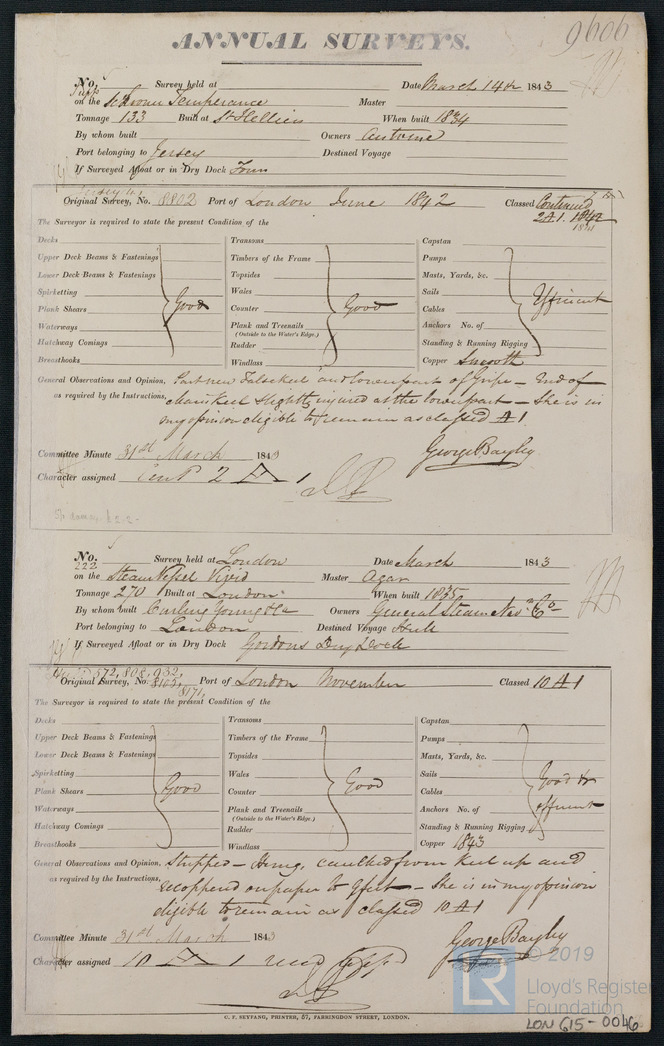 9606
ANNUAL SURVEYS.
No. Survey held at Date March 14th 1843
on the Schooner Temperance Master
Tonnage 133 Built at St Helliers When built 1834
By whom built Owners Antoine
Port belonging to Jersey Destined Voyage
If Surveyed Afloat or in Dry Dock
Original Survey, No. 8802 Port of London June 1842 Classed Continued
2 A 1. 1842
The Surveyor is required to state the present Condition of the
Decks Transoms Capstan
Upper Deck Beams & Fastenings Timbers of the Frame Pumps
Lower Deck Beams & Fastenings Topsides Masts, Yards, &c.
Spirketting Wales Sails
Plank Shears Good Counter Good Cables Efficient
Waterways Plank and Treenails Anchors No. of
(Outside to the Water's Edge.)
Hatchway Comings Rudder Standing & Running Rigging
Breasthooks Windlass Copper Smooth
General Observations and Opinion, Part new False keel and lower part of Gripe – End of
as required by the Instructions, Main Keel slightly injured at the lower part – She is in
my opinion eligible to remain as classed A 1
Committee Minute 31st March 1843 George Bayley
Character assigned Cont 2 A 1
No. 222 Survey held at London Date March 1843
on the Steam Vessel Vivid Master Agar
Tonnage 270 Built at London When built 1835
By whom built Curling Young & Co Owners General Steam Nav. Co
Port belonging to London Destined Voyage Hull
If Surveyed Afloat or in Dry Dock Gordons Dry Dock
572, 808, 932,
Original Survey, No. 8102, Port of London November Classed 10 A 1
8171,
The Surveyor is required to state the present Condition of the
Decks Transoms Capstan
Upper Deck Beams & Fastenings Timbers of the Frame Pumps
Lower Deck Beams & Fastenings Topsides Masts, Yards, &c.
Spirketting Wales Sails
Plank Shears Good Counter Good Cables Good &
Waterways Plank and Treenails Anchors No. of efficient
(Outside to the Water's Edge.)
Hatchway Comings Rudder Standing & Running Rigging
Breasthooks Windlass Copper 1843
General Observations and Opinion, Stripped – caulked from Keel up and
as required by the Instructions, recoppered on paper to 9 feet – She is in my opinion
eligible to remain as classed 10 A 1
Committee Minute 31st March 1843 George Bayley
Character assigned 10 A 1
C. F. SEYFANG, PRINTER, 57, FARRINGDON STREET, LONDON.
LR © 2019
Lloyd's Register
Foundation
LON 615-0046